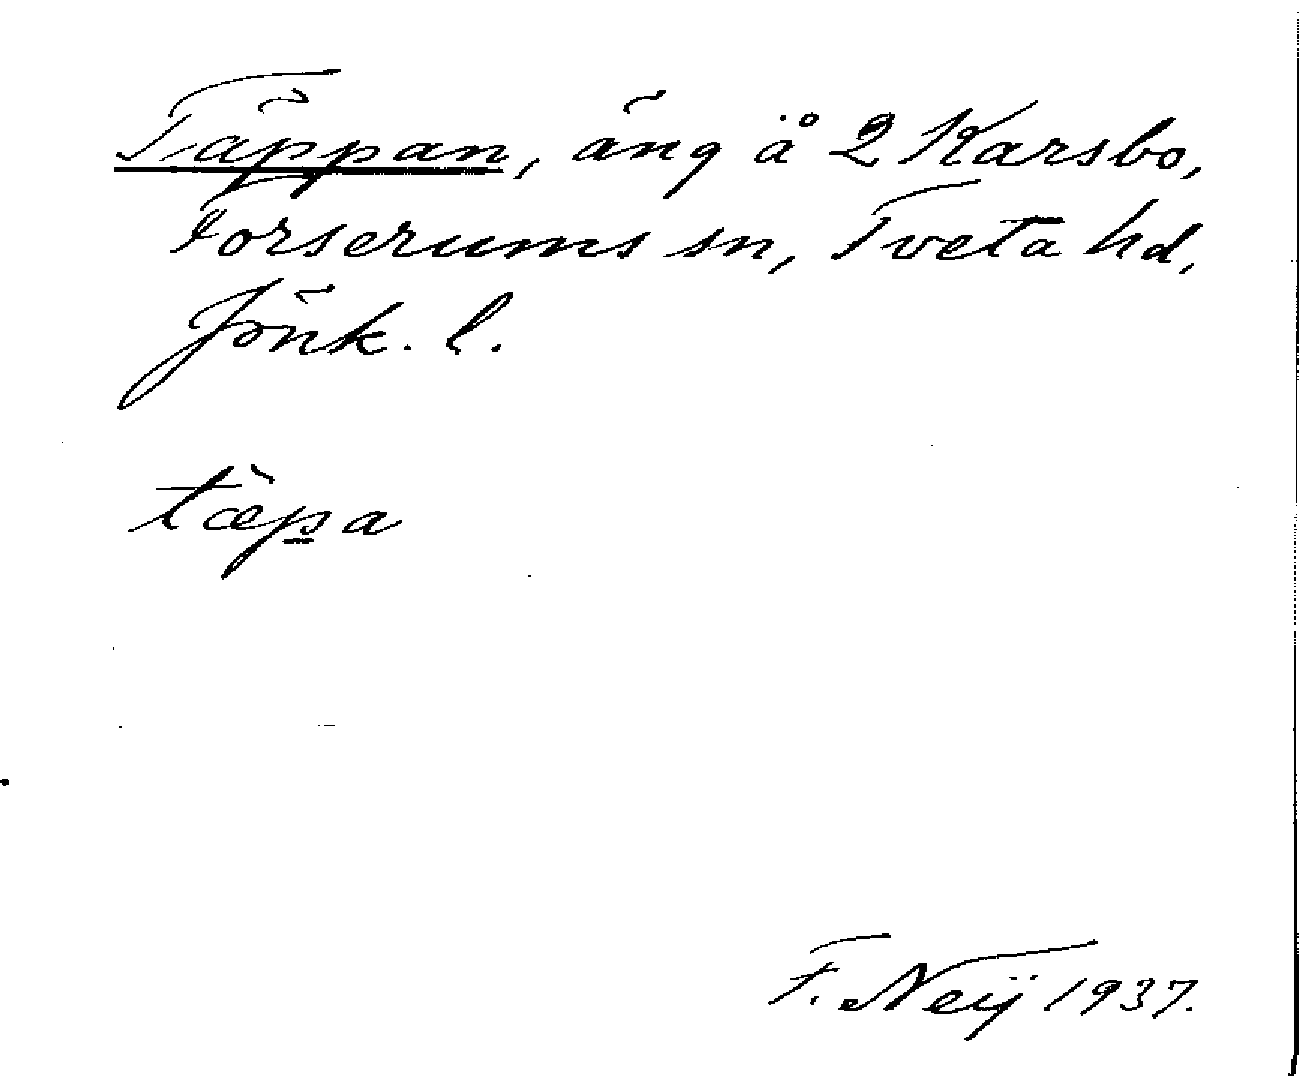 Täppan, äng å 2 Karsbo,
Forserums sn, Tveta hd,
Jönk. l.
tæ̀p̲a
F. Neij 1937.